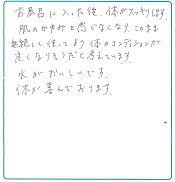 お風呂に入った後、体がスッキリします
肌のかゆみを感じなくなり、このまま
継続して使ってより体のコンディションが
良くなりそうだと考えています。
水がおいしいです。
体が喜んでおります。